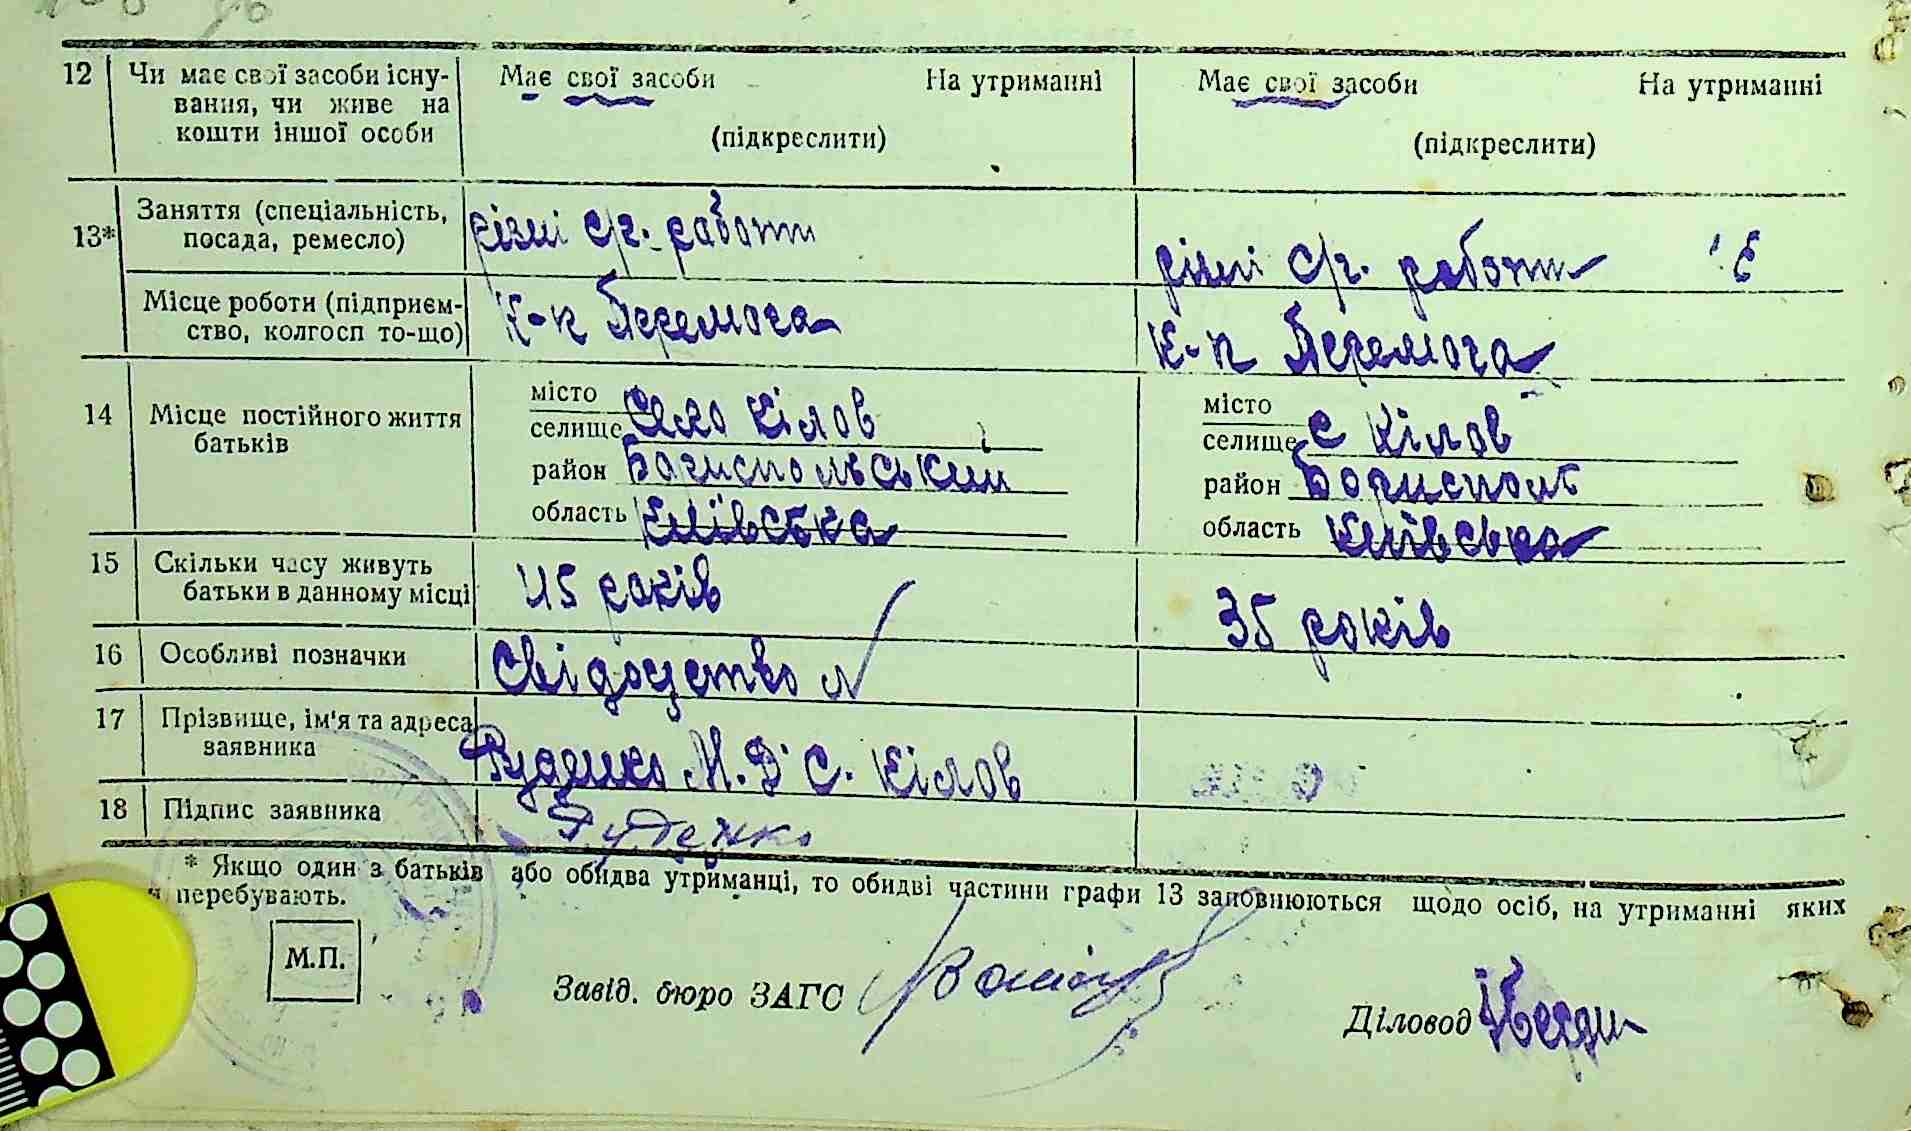 12 Чи має свої засоби існу- Має свої засоби На утриманні Має свої засоби На утриманні
вання, чи живе на
кошти іншої особи (підкреслити) (підкреслити)
13* Заняття (спеціальність, посада, ремесло) різні с/г. работи різні с/г. роботи
Місце роботи (підприєм-
ство, колгосп то-що) К-п Перемога К-п Перемога
14 Місце постійного життя
батьків
місто
селище Село Кілов
район Бориспольський
область Київська
місто
селище с Кілов
район Бориспол
область Київська
15 Скільки часу живуть
батьки в данному місці 45 років 35 років
16 Особливі позначки Свідоцтво N
17 Прізвище, ім'я та адреса
заявника Руденко М. Д. С. Кілов
18 Підпис заявника Руденко
* Якщо один з батьків або обидва утриманці, то обидві частини графи 13 заповнюються щодо осіб, на утриманні яких
перебувають.
М.П.
Завід. бюро ЗАГС
Діловод